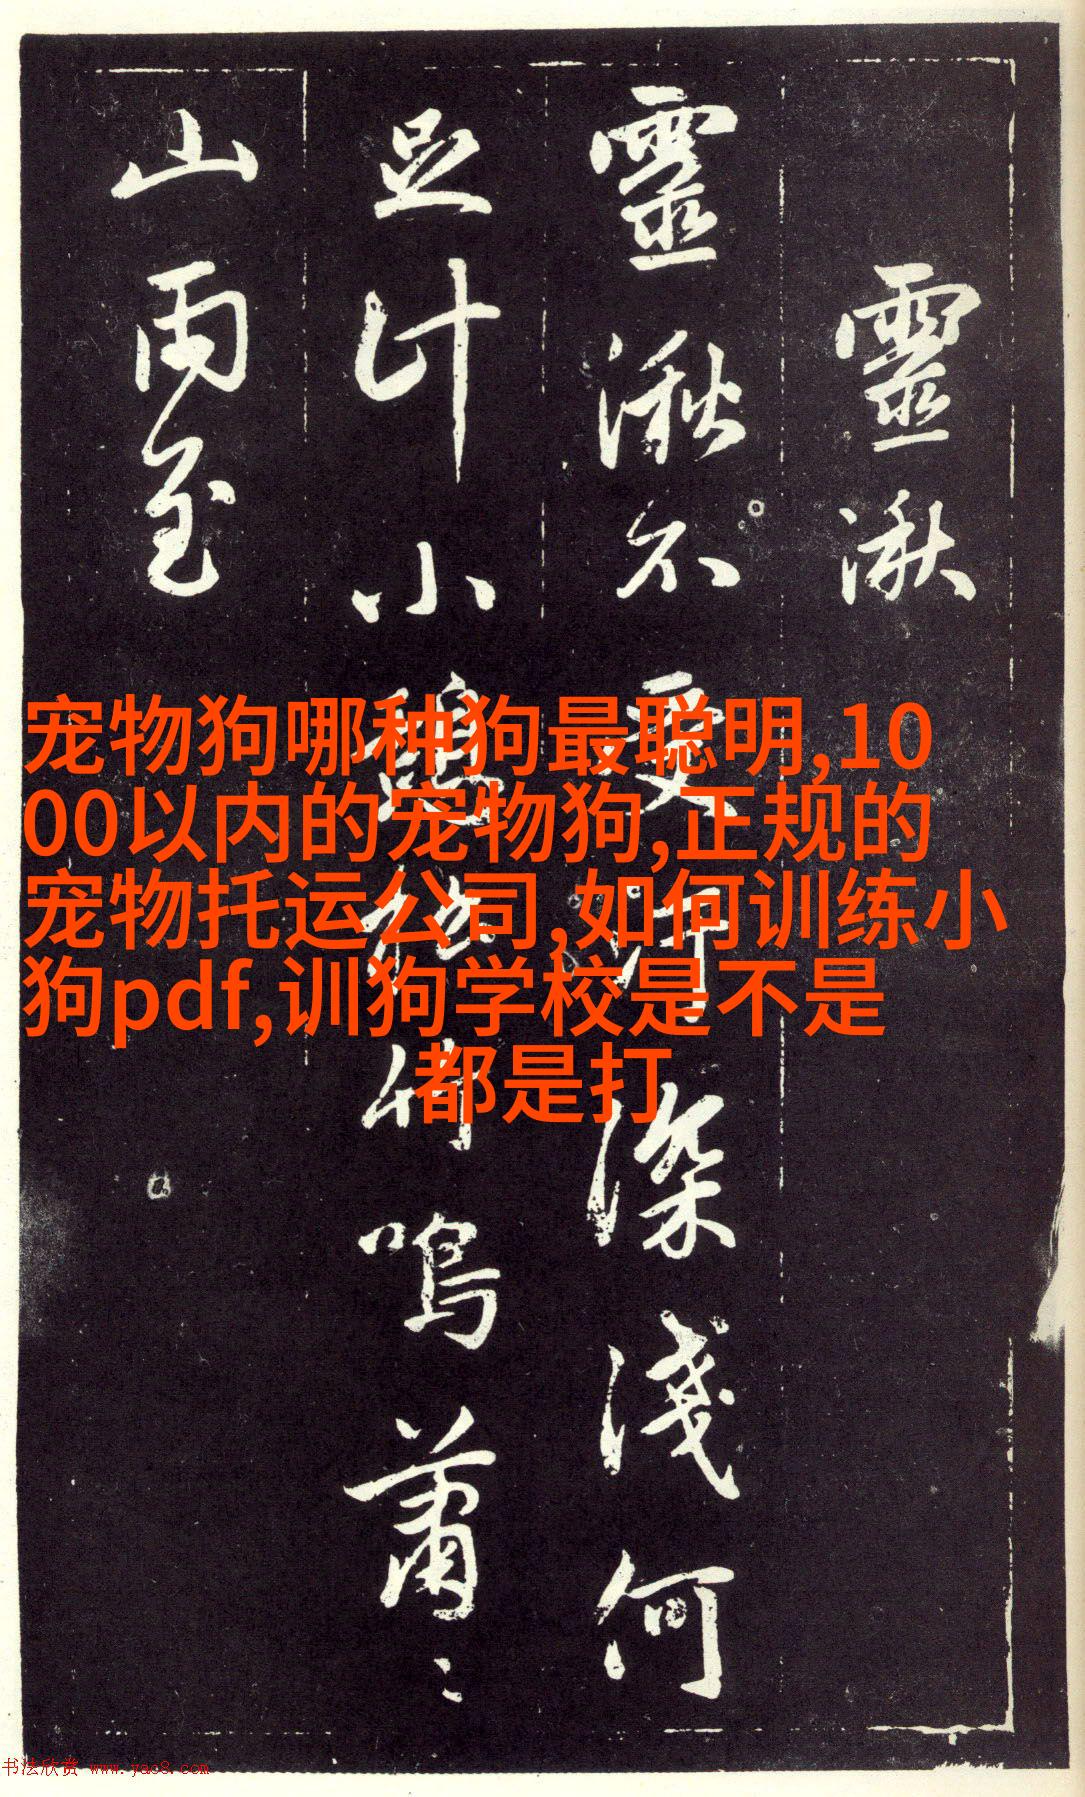 靈湫
靈湫不受汙深淺何
足計小鳴蕭〻
山雨至
宠物狗哪种狗最聪明,10
00以内的宠物狗,正规的
宠物托运公司,如何训练小
狗pdf,训狗学校是不是
都是打
书法欣赏 www.yac8.com